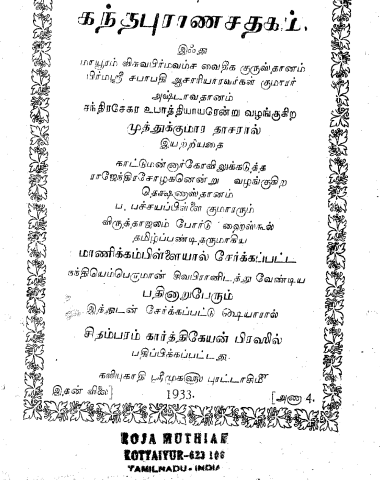 கந்தபுராணசதகம்.
இஃது
மாயூரம் விசுவபிர்மவம்ச வைதிக குருஸ்தானம்
பிர்மஸ்ரீ சபாபதி ஆசாரியாரவர்கள் குமாரர்
அஷ்டாவதானம்
சந்திரசேகர உபாத்தியாயரென்று வழங்குகிற
முத்துக்குமார தாசரால்
இயற்றியதை
காட்டுமன்னார்கோவிலுக்கடுத்த
ராஜேந்திரசோழகனென்று வழங்குகிற
ப. பச்சையப்பிள்ளை குமாரரும்
விருத்தாஜலம் போர்டு ஹைஸ்கூல்
தமிழ்ப்பண்டிதருமாகிய
மாணிக்கம்பிள்ளையால் சேர்க்கப்பட்ட
நந்தியெம்பெருமான் சிவபிரானிடத்து வேண்டிய
பதினாறுபேரும்
இத்துடன் சேர்க்கப்பட்டு
சிதம்பரம் கார்த்திகேயன் பிரஸில்
பதிப்பிக்கப்பட்டது.
ஸ்ரீமுகளு புரட்டாசிமீ
இதன் விலை] 1933. [அணா 4.
ROJA MUTHIAH
KOTTAIYUR-623 106
TAMILNADU - INDIA